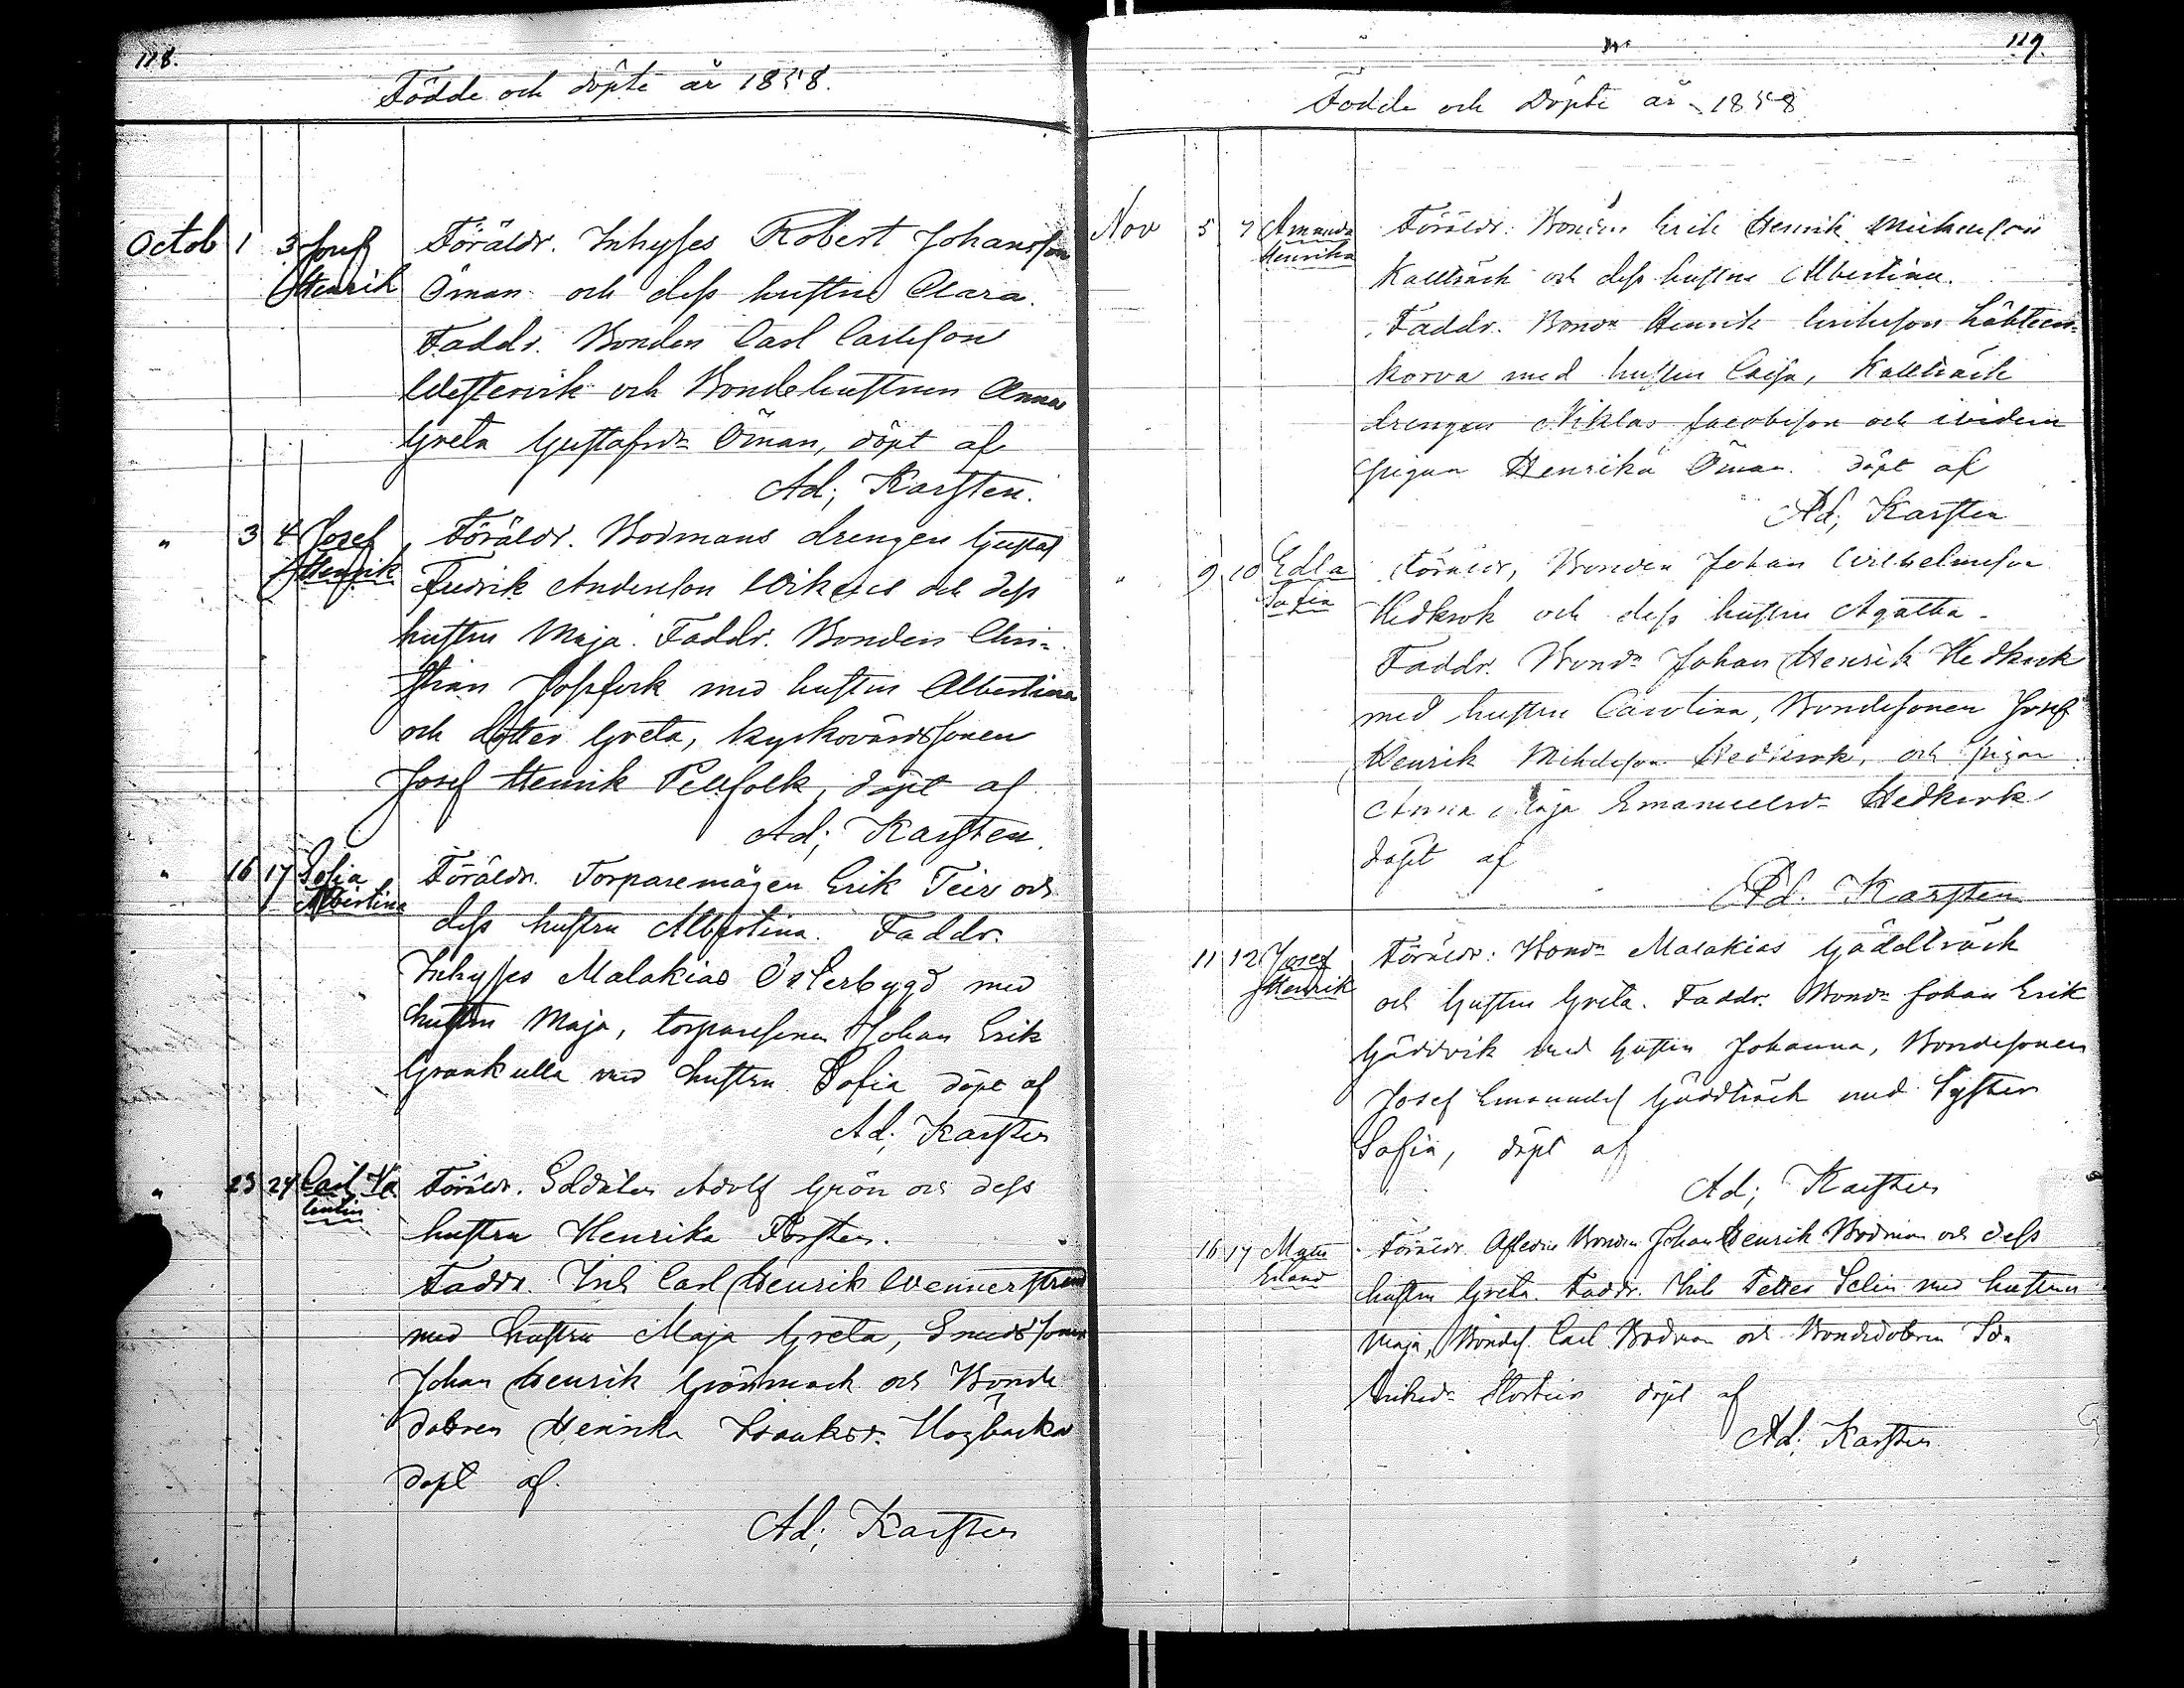 118.
Födde och döpte år 1858.
Octob 1 3 Josef Henrik
Föräldr. Inhyses Robert Johansson
Öman och dess hustru Clara.
Faddr. Bonden Carl Carlsson
Westervik och Bondehustrun Anna
Greta Gustafsdr Öman, döpt af
Ad; Karsten.
" 3 4 Josef Henrik
Föräldr. Bodmans drengen Gustaf
Fredrik Andersson och dess
hustru Maja. Faddr. Bonden Chri-
stian med hustru Albertina
och dotter Greta, kyrkovärdssonen
Josef Henrik Pellfolk, döpt af
Ad; Karsten.
" 16 17 Sofia Albertina
Föräldr. Torparemågen Erik Teir och
dess hustru Albertina. Faddr.
Inhyses Malakias Österbygd med
hustru Maja, torparesonen Johan Erik
Grankulla med hustru Sofia döpt af
Ad; Karsten
" 23 24 Carl Va
lentin
Föräldr. Soldaten Adolf Grön och dess
hustru Henrika
Faddr. Inh Carl Henrik Wennerstrand
med hustru Maja Greta, Smedssonen
Johan Henrik och Bonde
dotren Henrika Högbacka
döpt af.
Ad; Karsten
119.
Födde och Döpte år 1858
Nov 5 7 Amanda Henrika
Föräldr. Bonden Erik Henrik Mickelsson
Kallträsk och dess hustru Albertina.
Faddr. Bondn Henrik Eriksson Lähteen-
korva med hustru Caisa, Kallträsk
drengen Niklas Jacobsson och ibidem
pigan Henrika Öman. döpt af
Ad; Karsten
" 9 10 Edla Sofia
Föräldr, Bonden Johan Wilhelmsson
Hedkrok och dess hustru Agatha.
Faddr. Bondn Johan Henrik Hedkrok
med hustru Carolina, Bondesonen Josef
Henrik Mickelsson Hedkrok, och pigan
Anna Maja Emanuelsdr Hedkrok
döpt af
Ad. Karsten
11 12 Josef Henrik
Föräldr: Bondn Malakias Gäddträsk
och hustru Greta. Faddr. Bondn Johan Erik
Gäddvik med hustru Johanna, Bondesonen
Josef Emanuel Gäddträsk med Syster
Sofia, döpt af
Ad; Karsten
16 17 Matts Erland
Föräldr Afledne Bonden Johan Henrik Bodman och dess
hustru Greta. Faddr. Inh Petter Selin med hustru
Maja, Bondes. Carl Bodman och Bondedotren
Eriksdr döpt af
Ad; Karsten